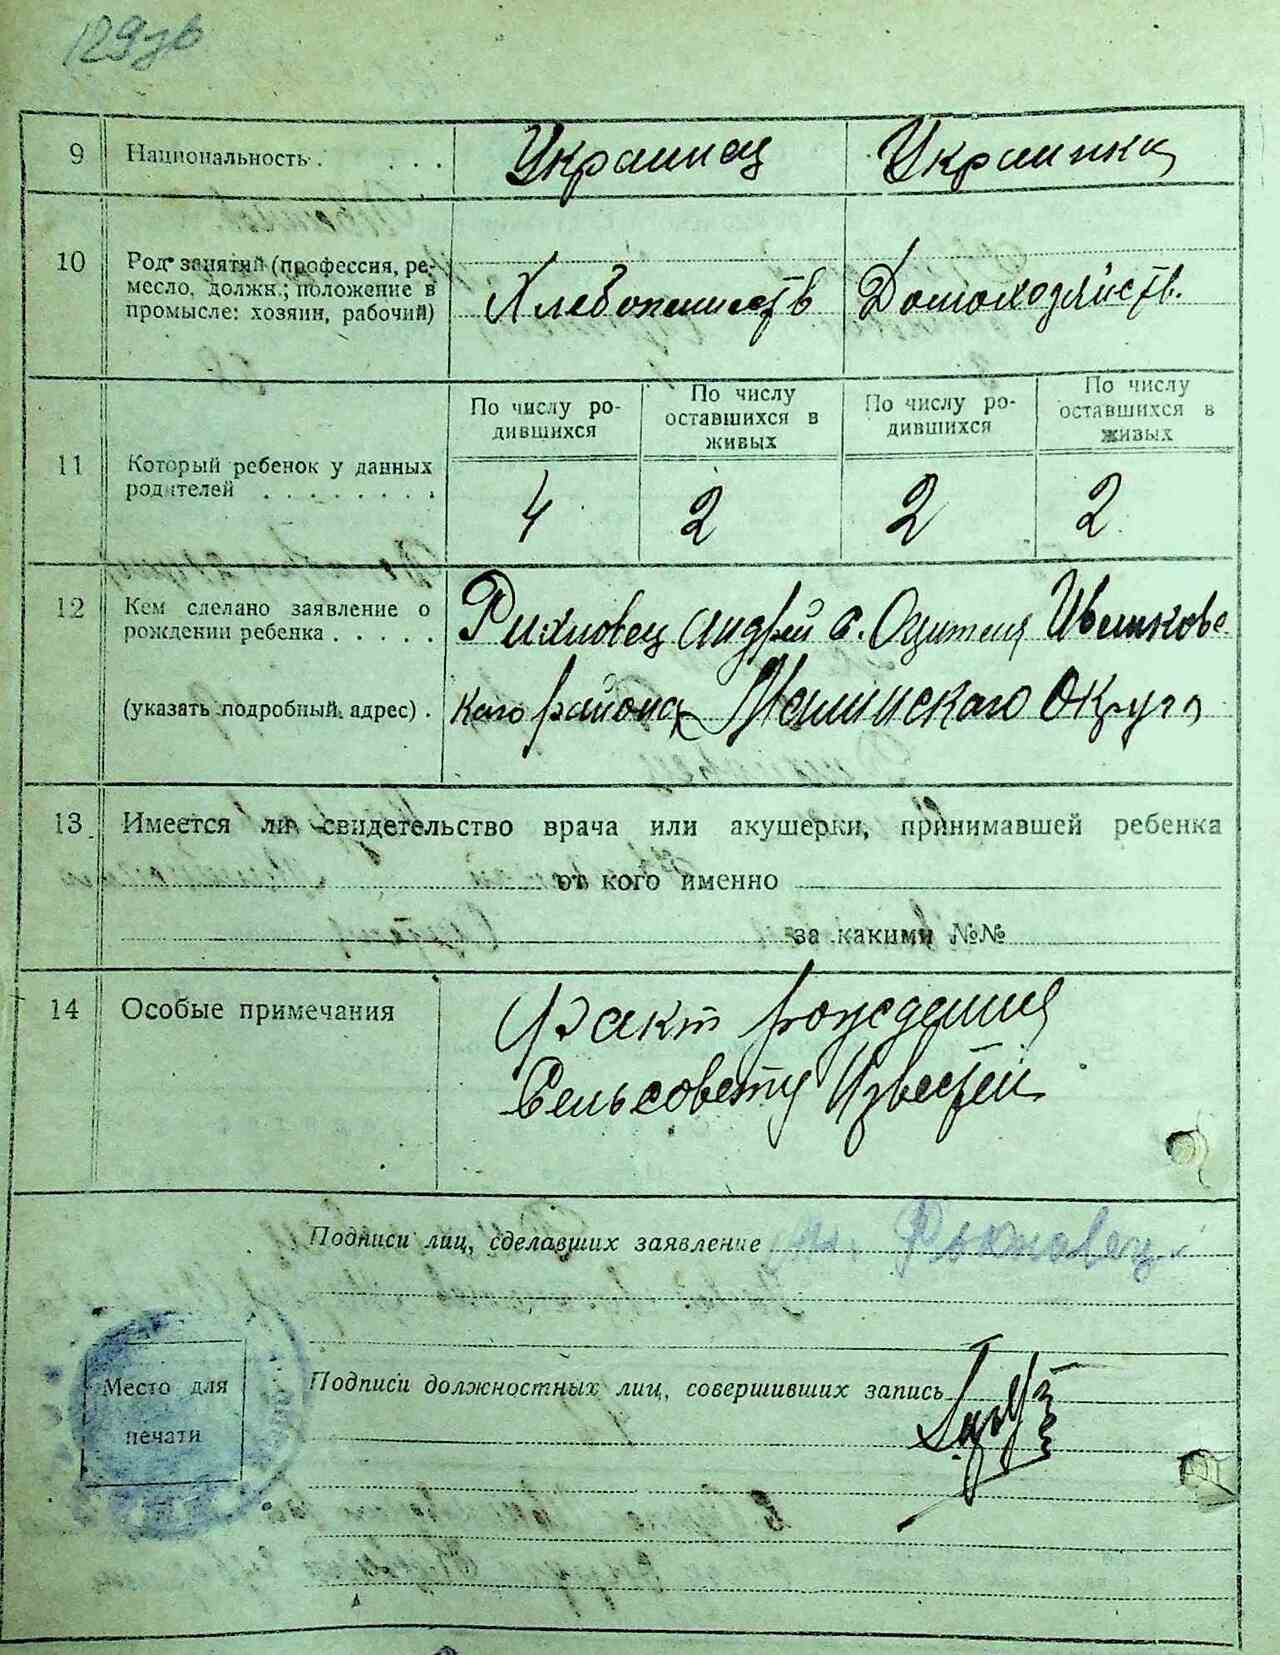 129 зв
9 Национальность . . . . Украинец Украинка
10 Род занятий (профессия, ре-
месло, должн.; положение в
промысле: хозяин, рабочий)
Хлебопашеств Домохозяйств.
По числу ро-
дившихся
По числу
оставшихся в
живых
По числу ро-
дившихся
По числу
оставшихся в
живых
11 Который ребенок у данных
родителей . . . . . . . .
4 2 2 2
12 Кем сделано заявление о
рождении ребенка . . . . .
(указать подробный адрес) .
Рихловец Андрей с.
кого района Округа
13 Имеется ли свидетельство врача или акушерки, принимавшей ребенка
от кого именно
за какими №№
14 Особые примечания
Факт рождения
Сельсовету Известен
Подписи лиц, сделавших заявление
Место для
печати
Подписи должностных лиц, совершивших запись